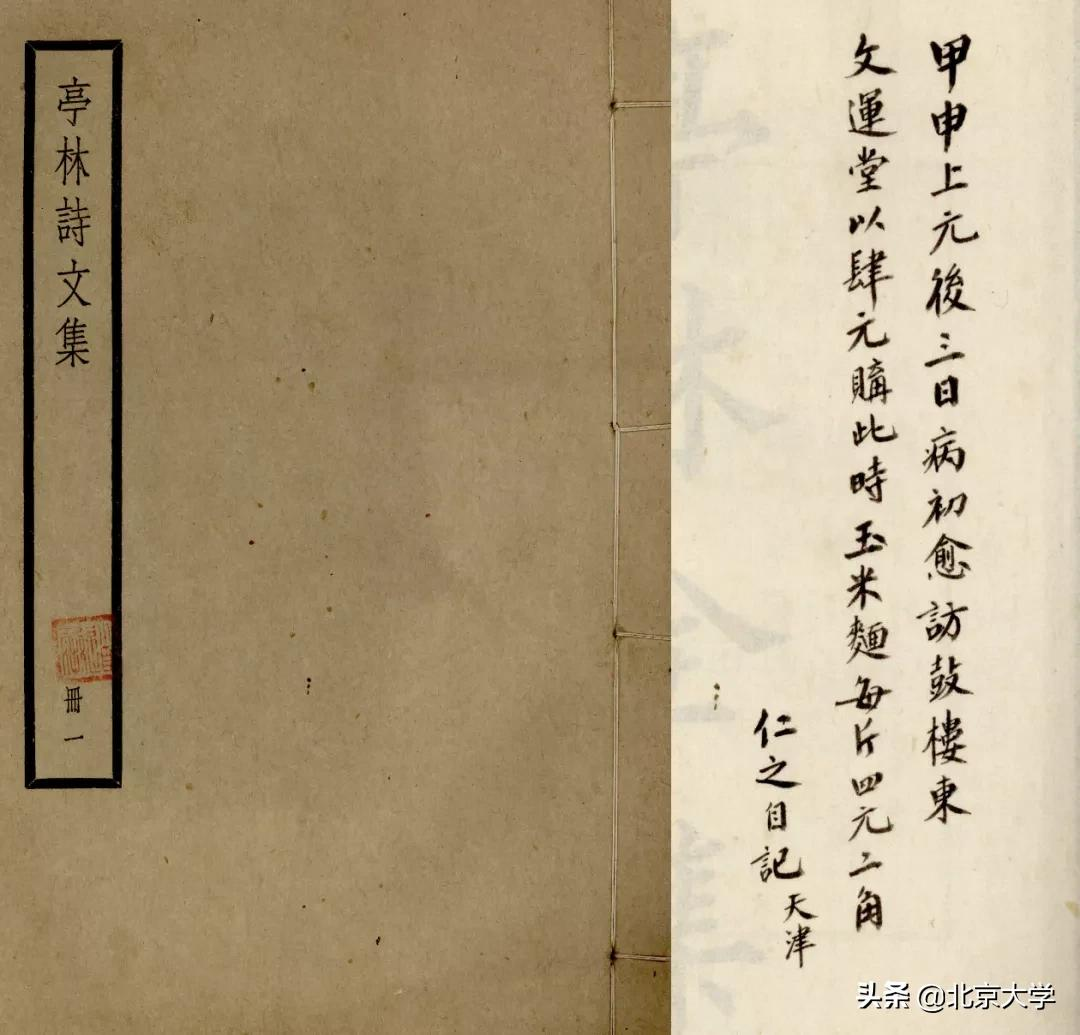 亭林詩文集
冊一
甲申上元後三日病初愈訪鼓樓東
文運堂以肆元購此時玉米麵每斤四元二角
仁之自記
天津
头条 @北京大学